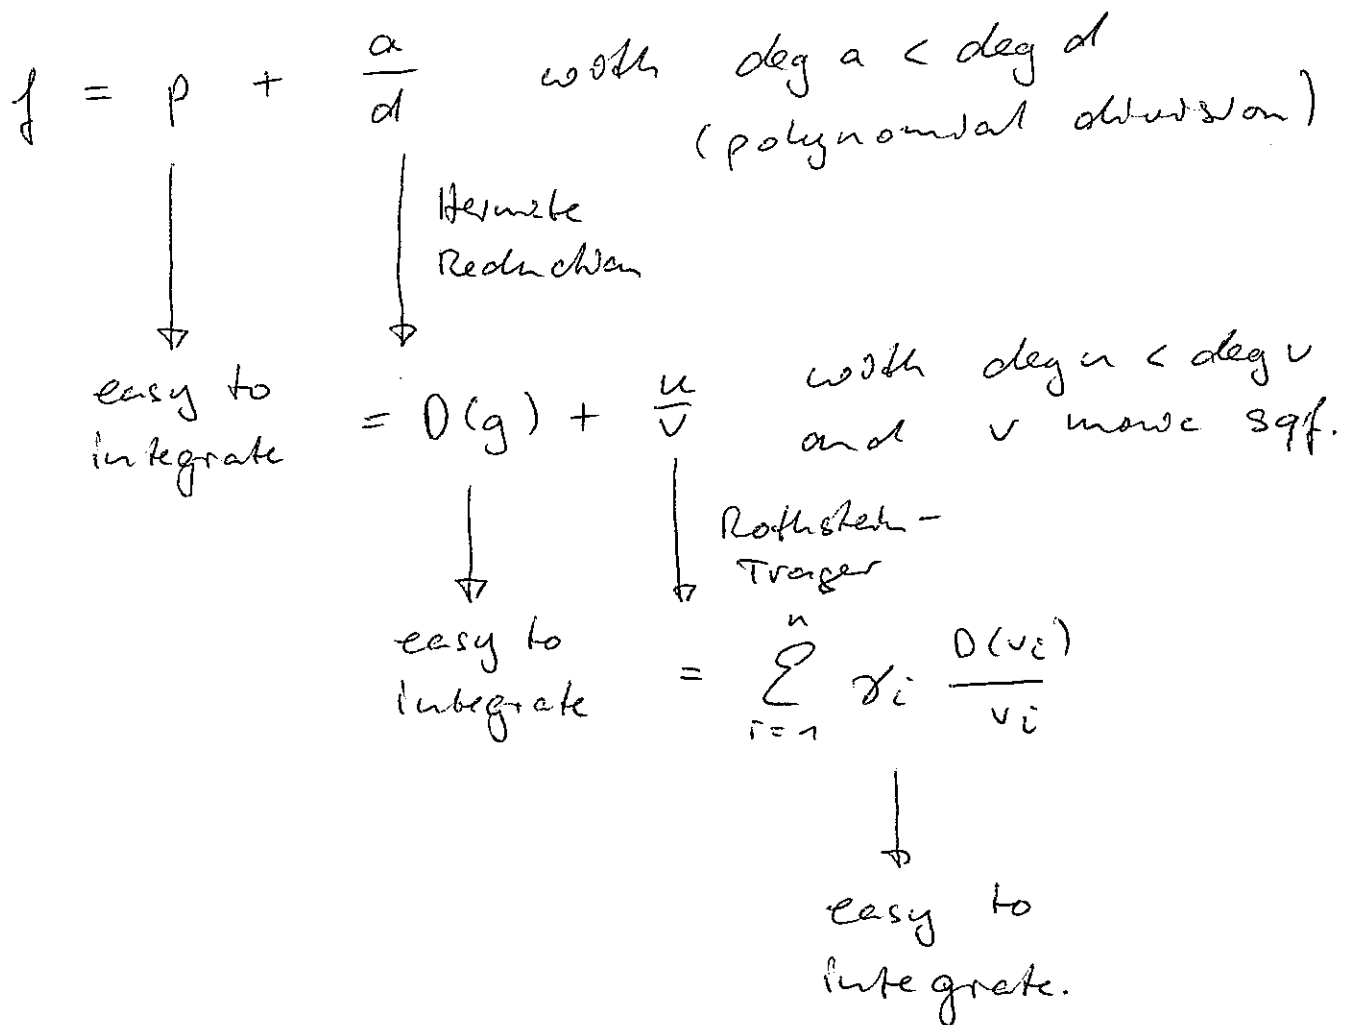 f = p + a/d with deg a < deg d
(polynomial division)
Hermite
Reduction
easy to
integrate
= D(g) + u/v with deg u < deg v
and v monic sqf.
Rothstein-
Trager
easy to
integrate
= \sum_{i=1}^{n} γ_i D(v_i)/v_i
easy to
integrate.